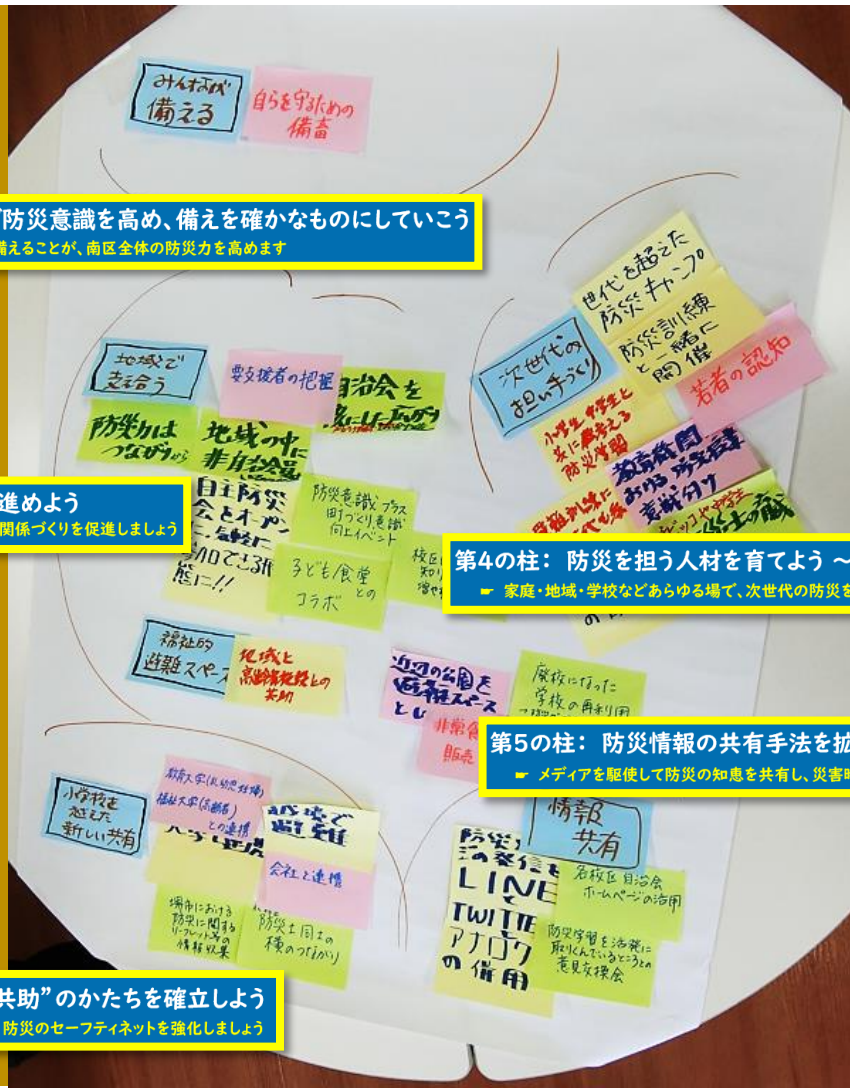 みんなが
備える
自らを守るための
備畜
防災意識を高め、備えを確かなものにしていこう
備えることが、南区全体の防災力を高めます
世代を超えた
防災キャンプ
防災訓練
と一緒に
開催
次世代の
担い手づくり
若者の認知
小学生・中学生と
共に考える
防災学習
教育機関
おける防災授業
意識分け
地域で
支え合う
要支援者の把握
自治会を
防災力は
つながりから
地域の中に
非自治会員
自主防災
会をオープン
に、気軽に
参加できる形
態に!!
防災意識プラス
町づくり意識
向上イベント
子ども食堂
との
コラボ
進めよう
関係づくりを促進しましょう
第4の柱： 防災を担う人材を育てよう ～
☛ 家庭・地域・学校などあらゆる場で、次世代の防災を
福祉的
避難スペース
地域と
高齢者施設との
共助
近辺の公園を
避難スペース
とし
非常食
販売
廃校になった
学校の再利用
第5の柱： 防災情報の共有手法を拡
☛ メディアを駆使して防災の知恵を共有し、災害時
小学校を
越えた
新しい共有
教育大学(乳幼児・妊婦)
福祉大学(高齢者)
との連携
避難
会社と連携
堺市における
防災に関する
リーフレット等の
情報収集
防災士同士の
横のつながり
情報
共有
防災
の発信を
LINE
と
TWITTE
アナログ
の併用
各校区自治会
ホームページの活用
防災学習を活発に
取りくんでいるところとの
意見交換会
共助”のかたちを確立しよう
防災のセーフティネットを強化しましょう